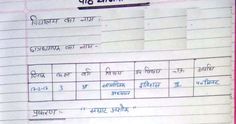 पाठ योजना
विद्यालय का नाम -
छात्राध्यापक का नाम -
दिनांक कक्षा वर्ग विषय उप विषय अवधि
3 अ सामाजिक अध्ययन इतिहास
प्रकरण - " सम्राट अशोक "